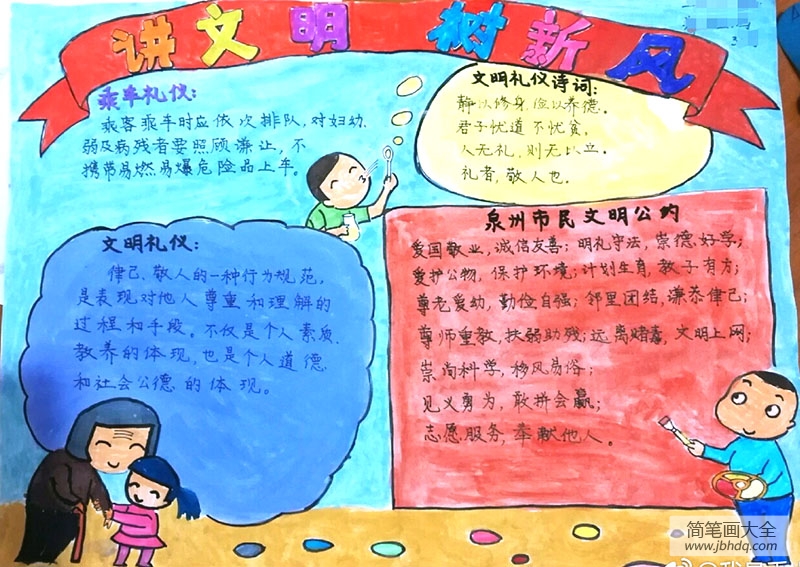 讲文明 树新风
乘车礼仪:
乘客乘车时应依次排队,对妇幼、
弱及病残者要照顾谦让,不
携带易燃易爆危险品上车。
文明礼仪诗词:
静以修身,俭以养德。
君子忧道不忧贫。
人无礼,则无以立。
礼者,敬人也.
文明礼仪:
律己、敬人的一种行为规范,
是表现对他人尊重和理解的
过程和手段。不仅是个人素质、
教养的体现,也是个人道德
和社会公德的体现。
泉州市民文明公约
爱国敬业,诚信友善;明礼守法,崇德好学;
爱护公物,保护环境;计划生育,教子有方;
尊老爱幼,勤俭自强;邻里团结,谦恭律己;
尊师重教,扶弱助残;远离赌毒,文明上网;
崇尚科学,移风易俗;
见义勇为,敢拼会赢;
志愿服务,奉献他人。
简笔画大全
www.jbhdq.com